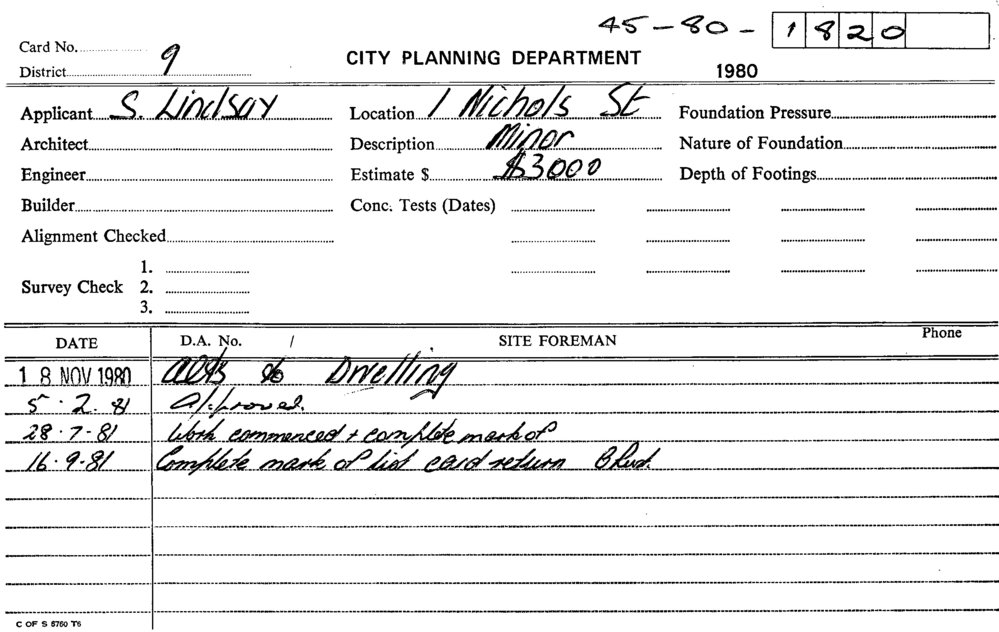 45-80- 1820
Card No. 9
CITY PLANNING DEPARTMENT
District
1980
Applicant S. Lindsay Location 1 Nichols St Foundation Pressure
Architect Description Minor Nature of Foundation
Engineer Estimate $ $3000 Depth of Footings
Builder Conc. Tests (Dates)
Alignment Checked
1.
Survey Check 2.
3.
DATE D.A. No. / SITE FOREMAN Phone
18 NOV 1980 Alts to Dwelling
5.2.81 Approved.
28-7-81 Work commenced + complete mark of
16.9.81 Complete mark of list card return
C OF S 5760 T6